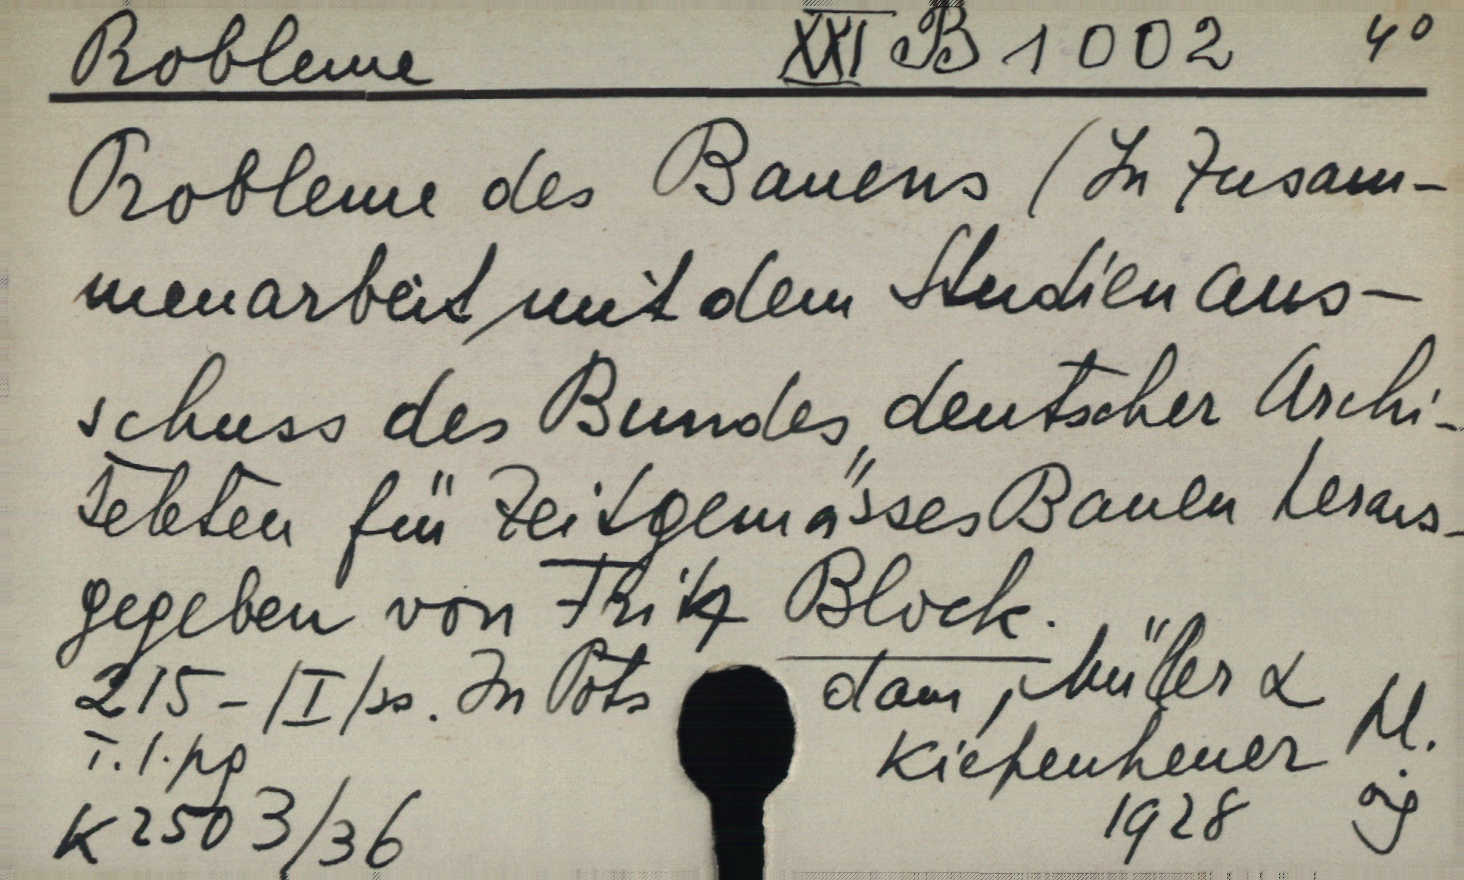 Probleme XXI B 1002 4°
Probleme des Bauens (In Zusam-
menarbeit mit dem Studienaus-
schuss des Bundes deutscher Archi-
tekten für zeitgemässes Bauen heraus-
gegeben von Fritz Block.
215-/I/ss. In Potsdam, Müller &
T.l.pg Kiepenheuer
K 2503/36 1928